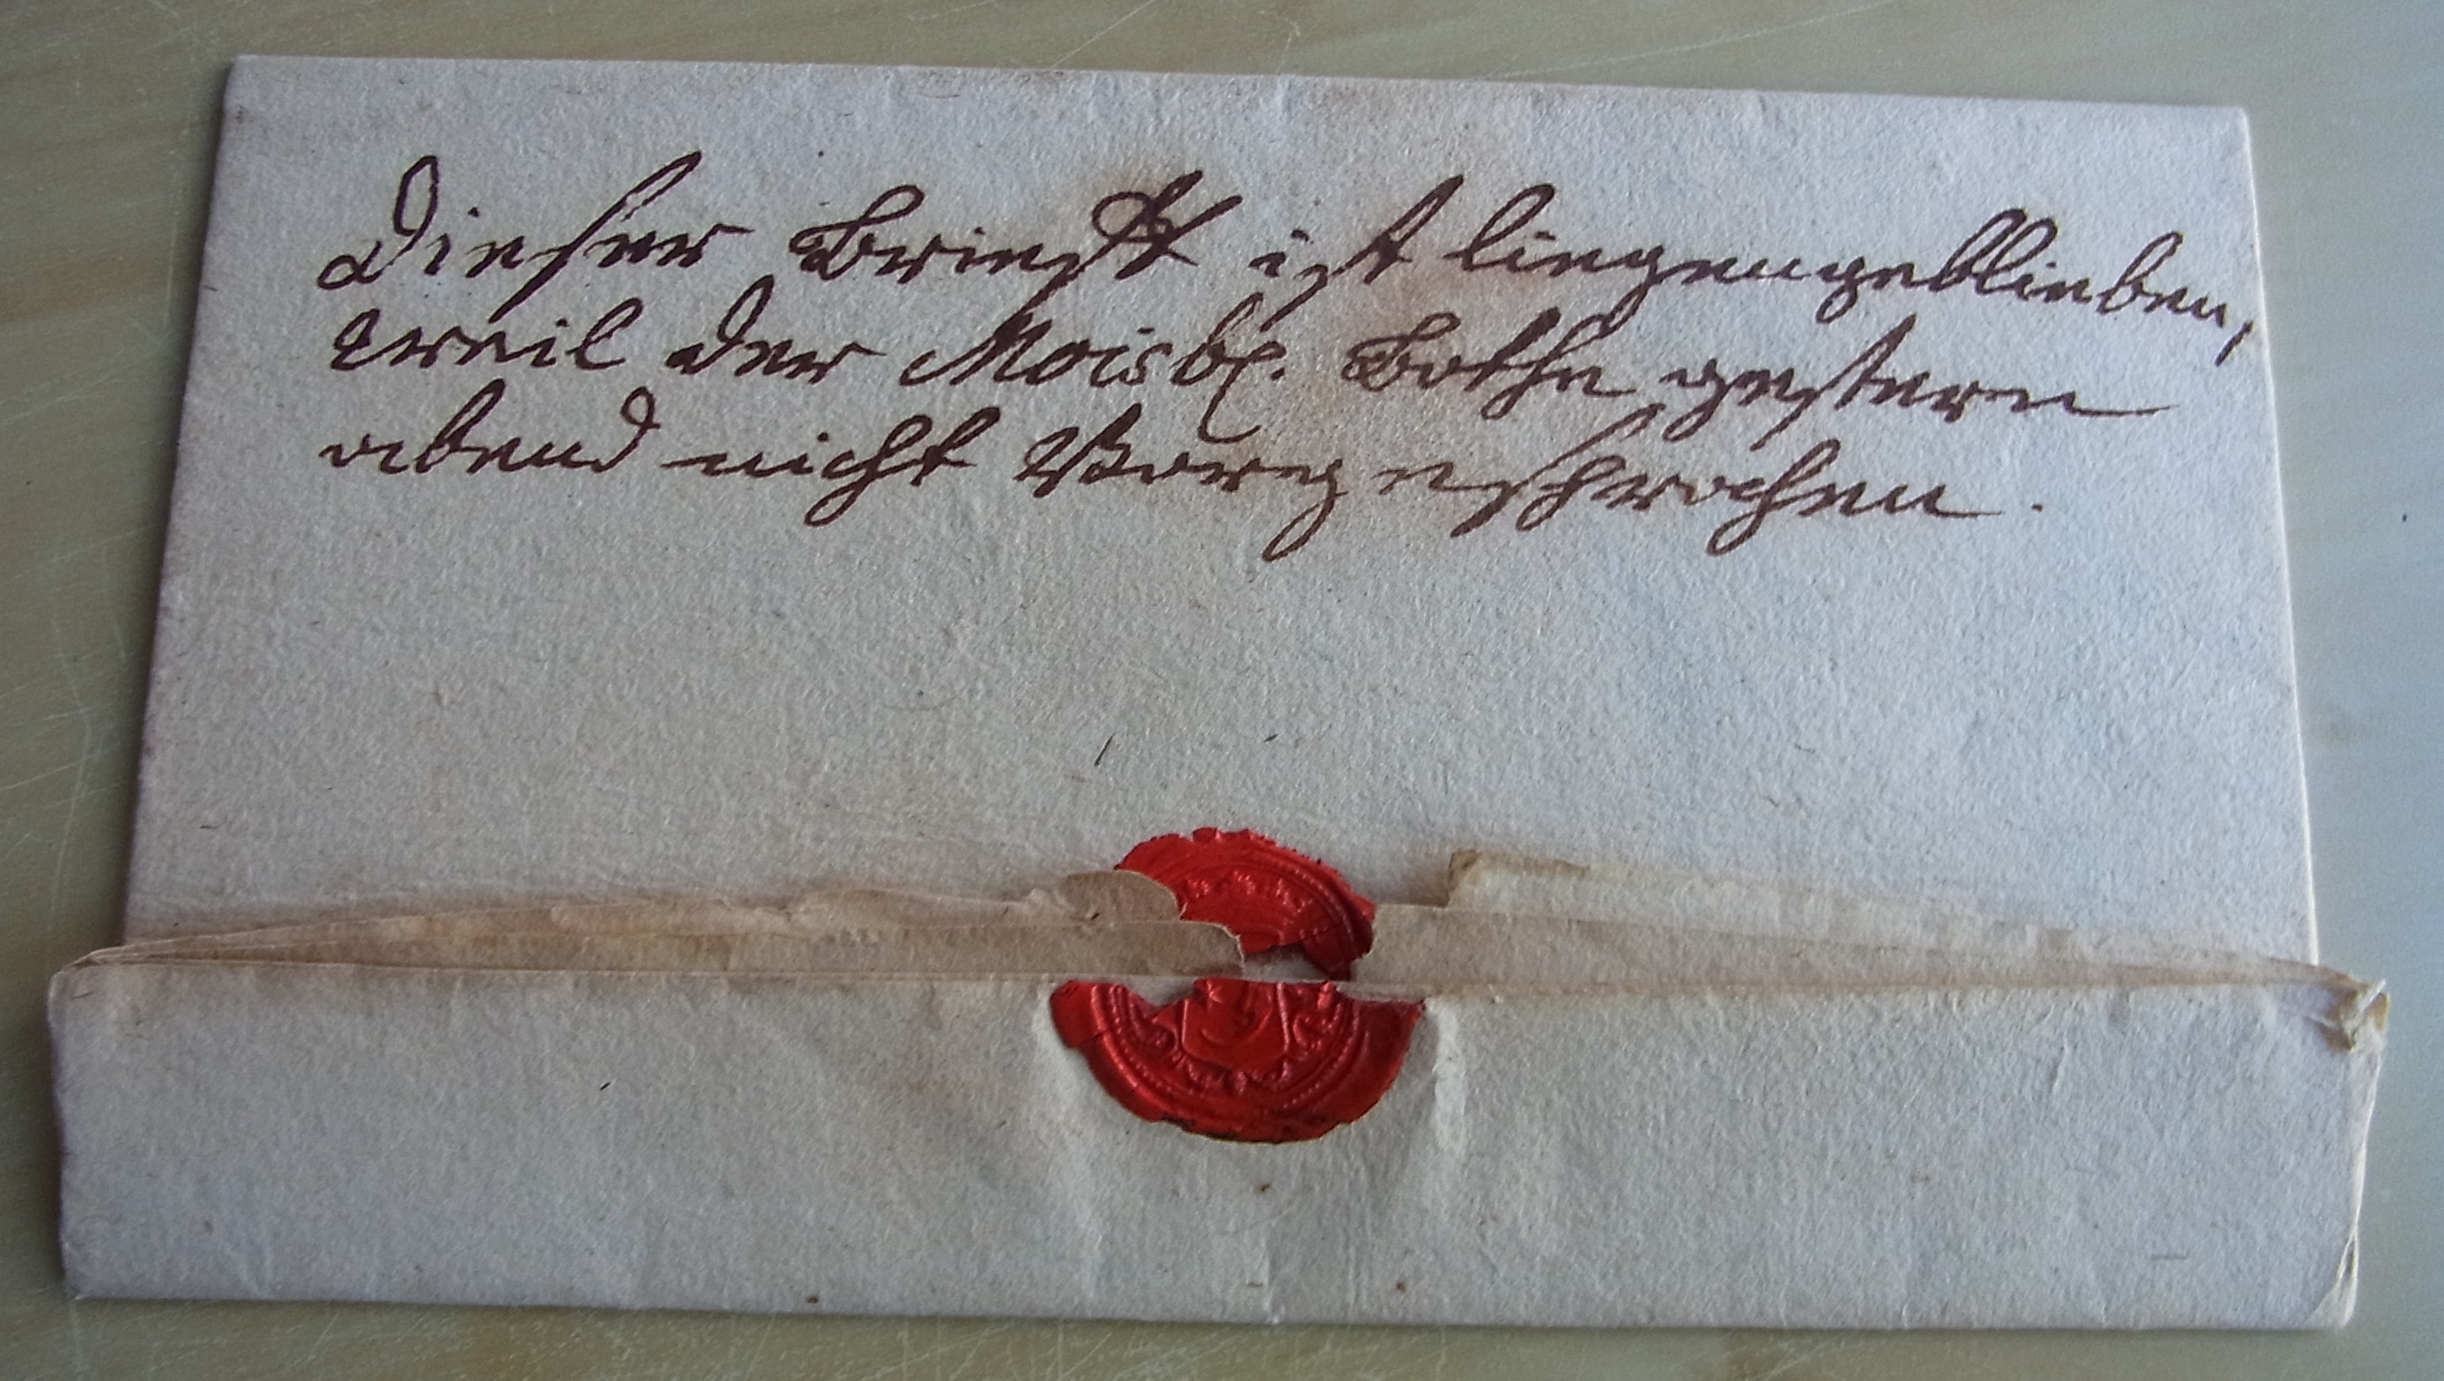 Dieser Brieff ist liegengeblieben,
weil der Moisb. Bothe gestern
abend nicht Vorgesprochen.